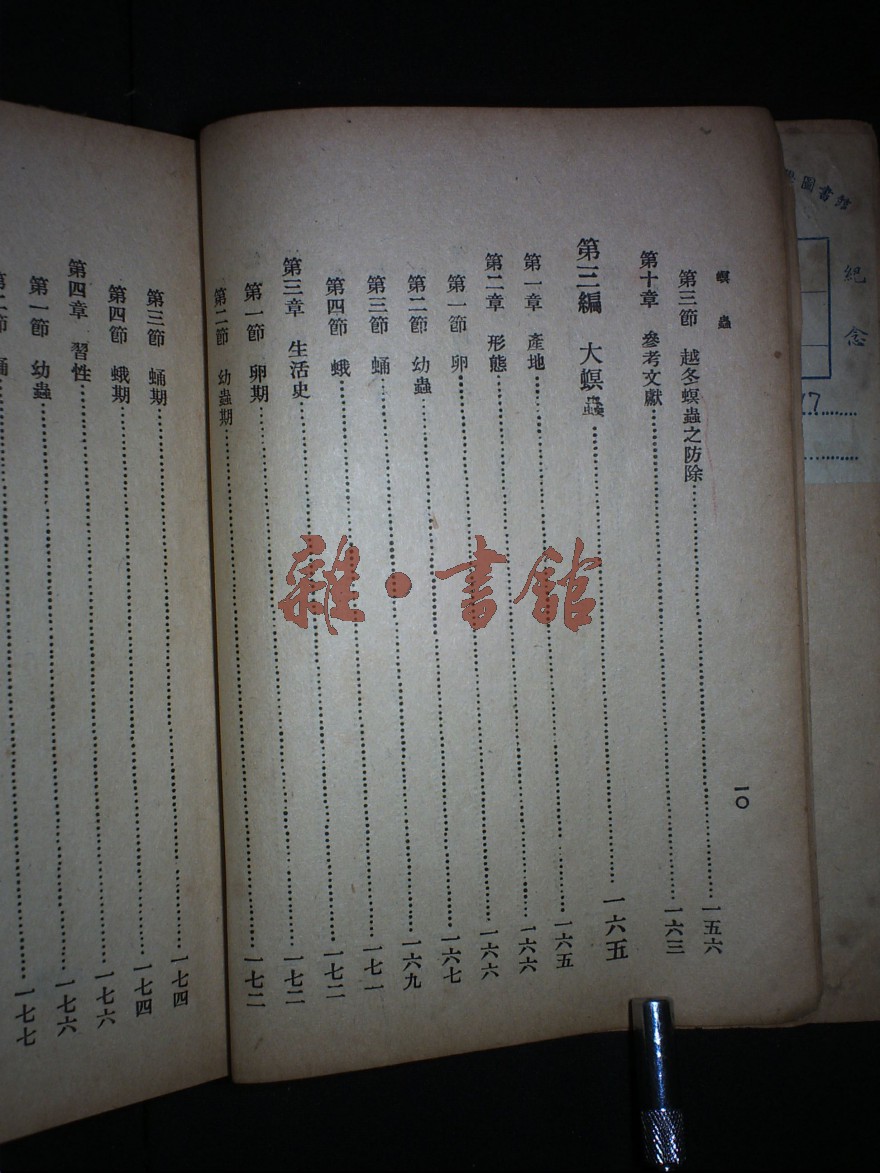 螟蟲
第三節 越冬螟蟲之防除……一五六
第十章 參考文獻……一六三
第三編 大螟蟲……一六五
第一章 產地……一六五
第二章 形態……一六六
第一節 卵……一六六
第二節 幼蟲……一六七
第三節 蛹……一六九
第四節 蛾……一七一
第三章 生活史……一七二
第一節 卵期……一七二
第二節 幼蟲期……一七二
一〇
第三節 蛹期……一七四
第四節 蛾期……一七四
第四章 習性……一七六
第一節 幼蟲……一七六
第二節 蛹……一七七
圖書館
紀念
雜·書館